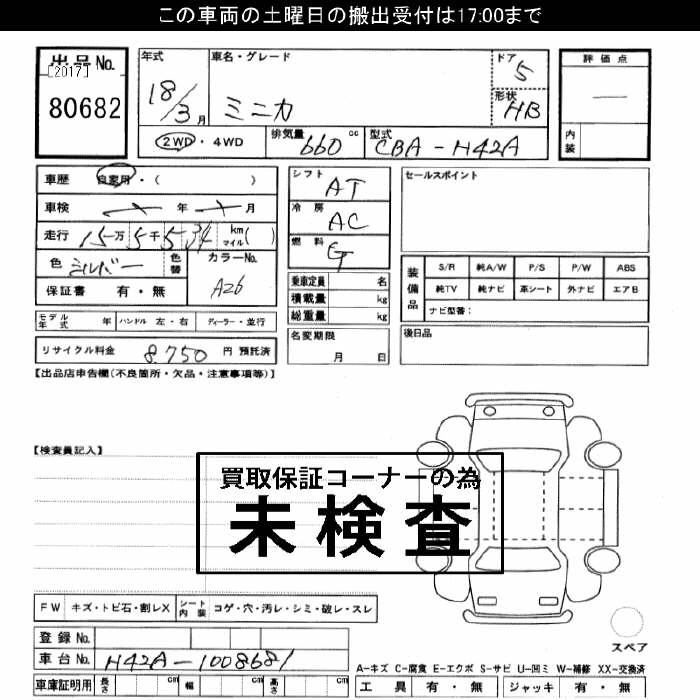 この車両の土曜日の搬出受付は17:00まで
出品No.
[2017]
80682
年式
18/3月
車名・グレード
ミニカ
ドア
5
形状
HB
評価点
―
内装
2WD・4WD
排気量
660 cc
型式
CBA-H42A
車歴 自家用・( )
車検 年 月
走行 15万5千534 km マイル( )
色 シルバー
色替
カラーNo.
A26
保証書 有・無
モデル年式 年 ハンドル 左・右 ディーラー・並行
リサイクル料金 8,750 円 預託済
シフト
AT
冷房
AC
燃料
G
乗車定員 名
積載量 kg
総重量 kg
名変期限
月 日
セールスポイント
装備品
S/R 純A/W P/S P/W ABS
純TV 純ナビ 革シート 外ナビ エアB
ナビ型番:
後日品
【出品店申告欄(不良箇所・欠品・注意事項等)】
【検査員記入】
買取保証コーナーの為
未検査
FW キズ・トビ石・割レX シート内装 コゲ・穴・汚レ・シミ・破レ・スレ
登録No.
車台No. H42A-1008681
車庫証明用 長さ cm 幅 cm 高さ cm
スペア
A-キズ C-腐食 E-エクボ S-サビ U-凹ミ W-補修 XX-交換済
工具 有・無 ジャッキ 有・無